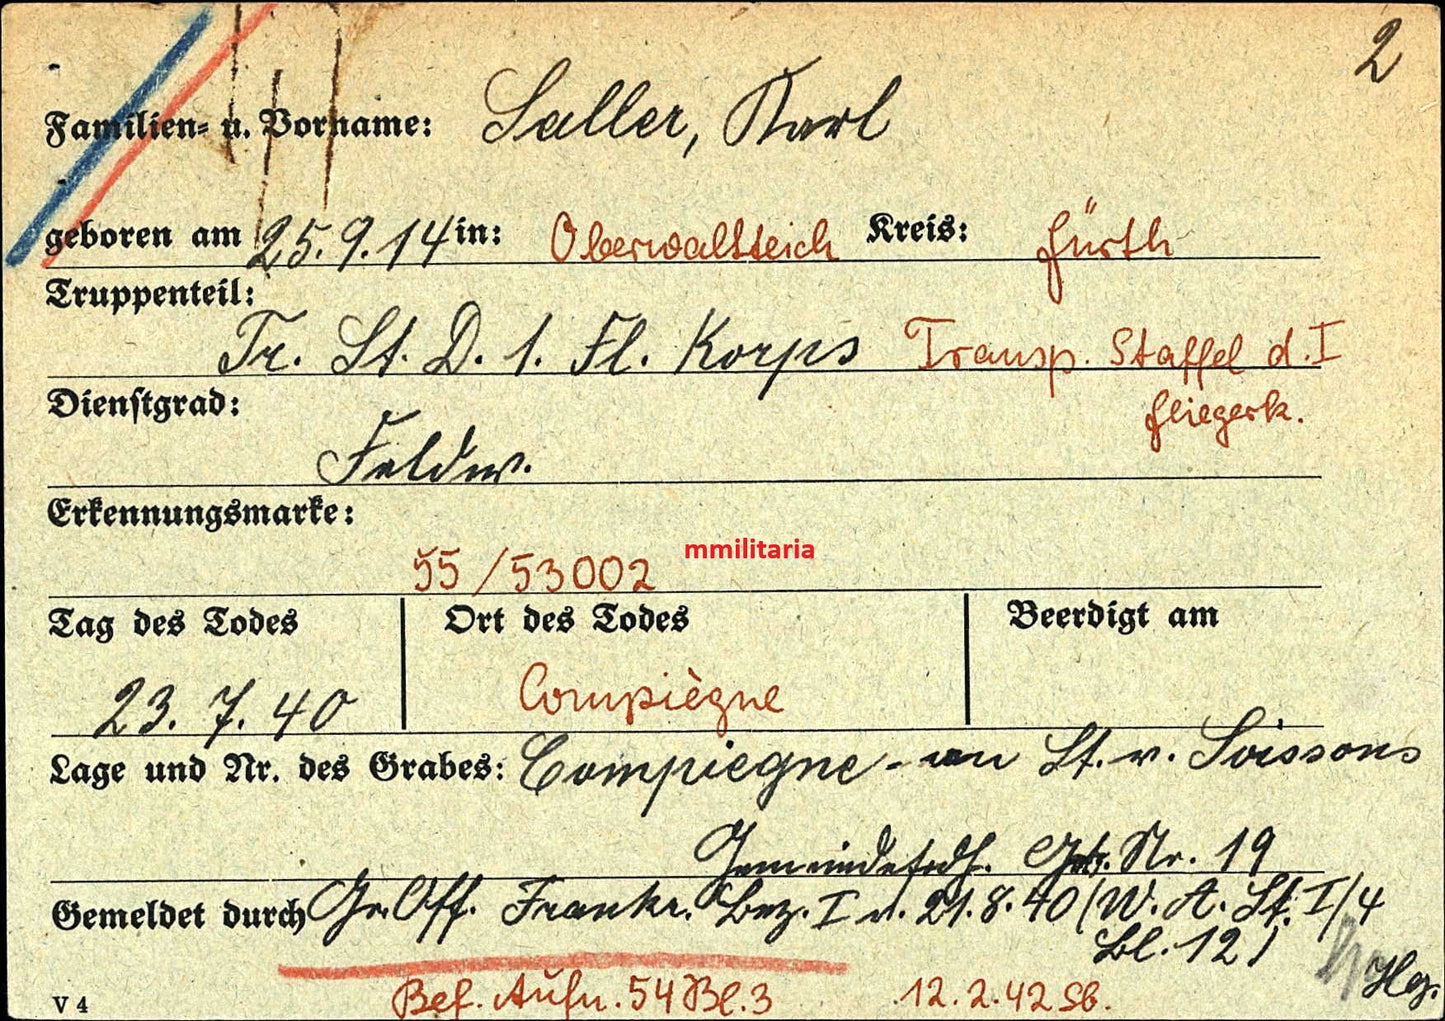 2
Familien- u. Vorname: Saller, Karl
geboren am 25.9.14 in: Oberwaltteich Kreis: Fürth
Truppenteil:
Tr. St. D. 1. Fl. Korps Transp. Staffel d. I
Fliegerk.
Dienstgrad:
Feldw.
Erkennungsmarke:
mmilitaria
55/53002
Tag des Todes Ort des Todes Beerdigt am
23. 7. 40 Compiègne
Lage und Nr. des Grabes: Compiegne - an St. v. Soissons
Gemeindefrdh. Grb. Nr. 19
Gemeldet durch Gr. Off. Frankr. Bez. I v. 21.8.40 (W. A. St. I/4
Bl. 12)
Hg.
V 4 Bef. Aufn. 54 Bl. 3 12.2.42 Sb.